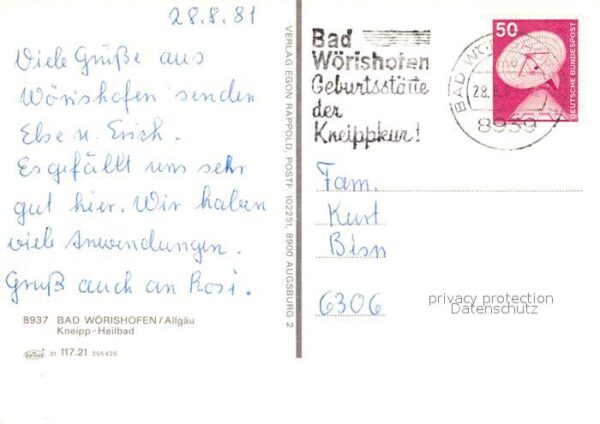 28.8.81
Viele Grüße aus
Wörishofen senden
Else u. Erich.
Es gefällt uns sehr
gut hier. Wir haben
viele Anwendungen.
Gruß auch an Rosi.
8937 BAD WÖRISHOFEN/Allgäu
Kneipp-Heilbad
31 117.21 255425
VERLAG EGON RAPPOLD, POSTF. 102251, 8900 AUGSBURG 2
Bad
Wörishofen
Geburtsstätte
der
Kneippkur!
50
DEUTSCHE BUNDESPOST
BAD
28.8
8939
Fam.
Kurt
6306
privacy protection
Datenschutz